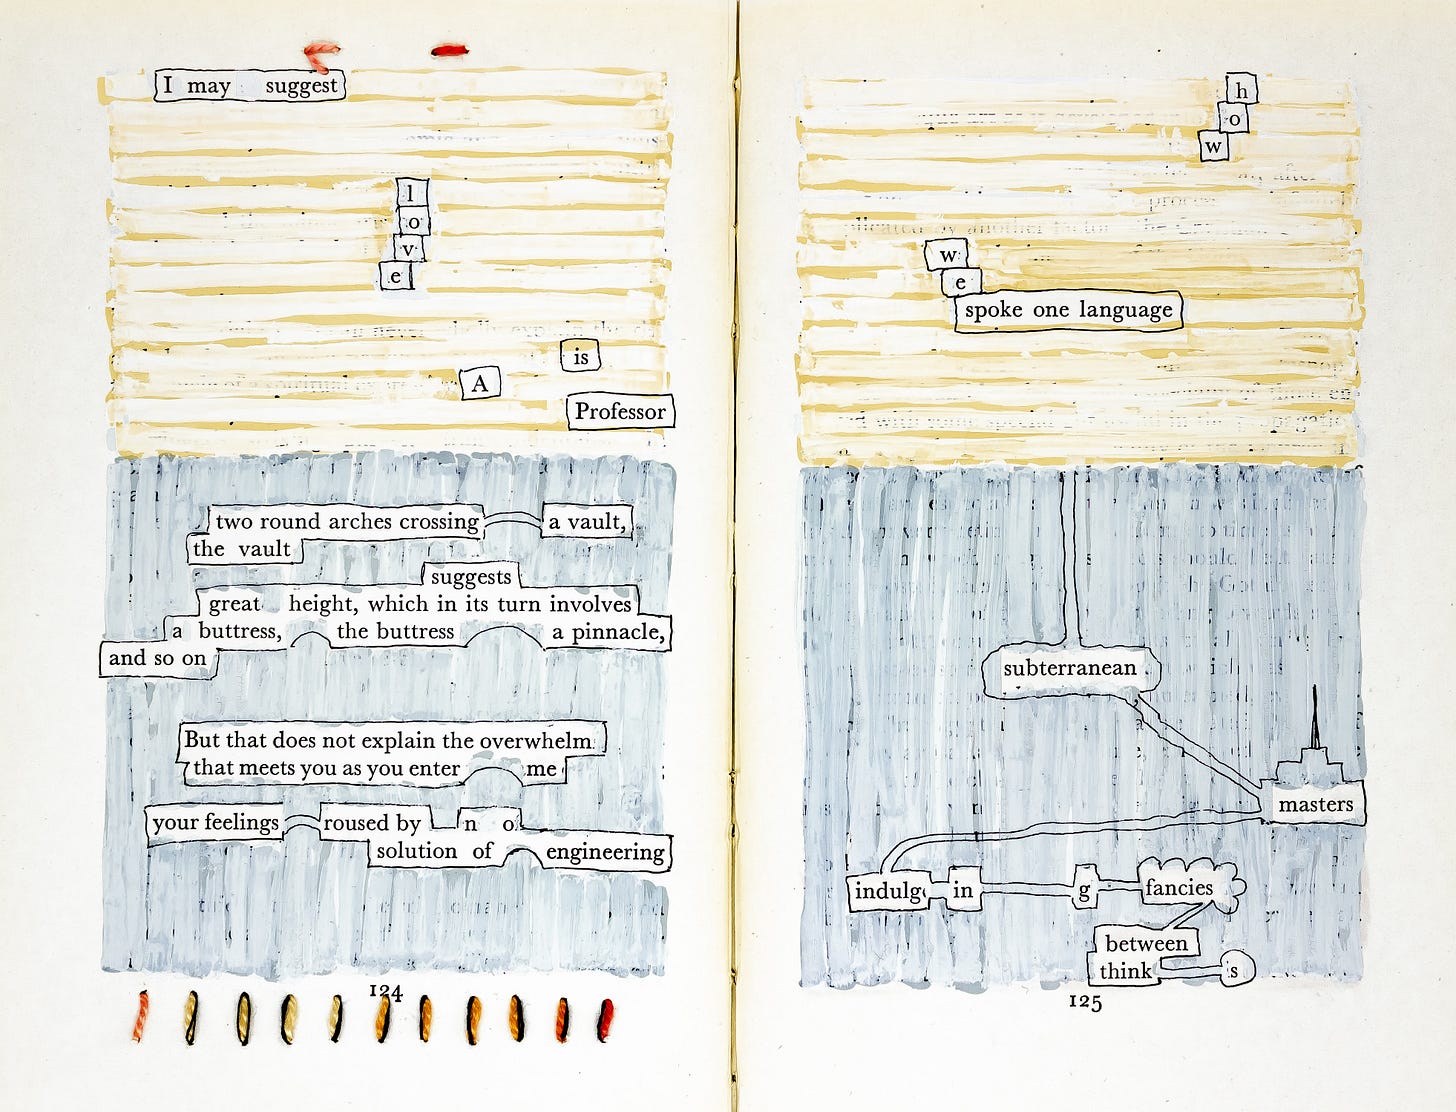 I may suggest
l
o
v
e
is
A
Professor
two round arches crossing a vault,
the vault
suggests
great height, which in its turn involves
a buttress, the buttress a pinnacle,
and so on
But that does not explain the overwhelm
that meets you as you enter me
your feelings roused by n o
solution of engineering
124
h
o
w
w
e
spoke one language
subterranean
masters
indulg in g fancies
between
think s
125